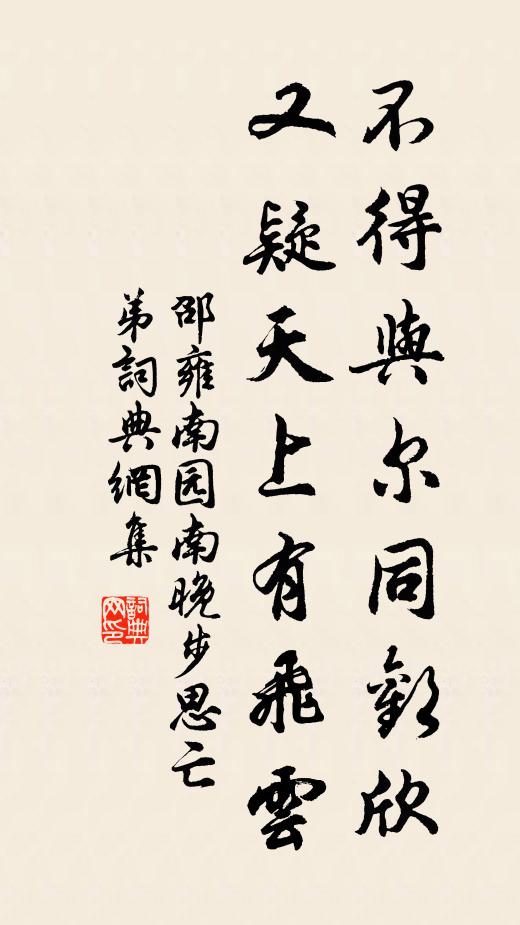 不得與尔同歡欣
又疑天上有飛雲
邵雍南园南晚步思亡
弟詞典網集
詞典
网印